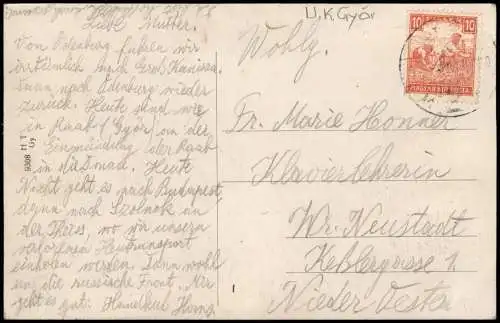 U.K. Györ
Liebe Mutter.
Vom Ödenburg fuhren wir
irrtümlich nach Groß Kanizsa
dann nach Ödenburg wieder
zurück. Heute sind wir
in Raab (Györ) an der
Einmündung der Raab
in die Donau. Heute
Nacht geht es nach Budapest,
dann nach Szolnok an
der Theiss, wo wir unsern
verlorenen
einholen werden. Dann wohl
an die russische Front. Mir
geht es gut.
Wohlg.
Fr. Marie Honner
Klavierlehrerin
Wr. Neustadt
Keßlergasse 1
Nieder Oester
10 10
MAGYAR KIR. POSTA
9308 H T
Gy